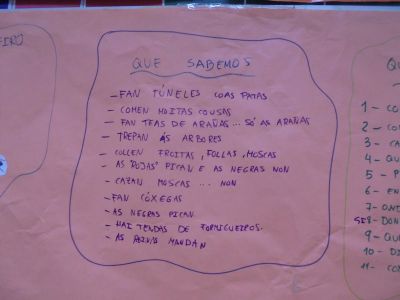 EIRO
QUE SABEMOS
-FAN TÚNELES COAS PATAS
- COMEN MOITAS COUSAS
- FAN TEAS DE ARAÑAS... SÓ AS ARAÑAS
- TREPAN ÁS ARBORES
- COLLEN FROITAS, FOLLAS, MOSCAS
- AS "ROJAS" PICAN E AS NEGRAS NON
- CAZAN MOSCAS ... NON
-FAN CÓXEGAS
-AS NEGRAS PICAN
- HAI TENDAS DE FORMIGUEIROS.
- AS MANDAN
QU
1- CO
2- CO
3- CA
4- QU
5- P
6- EN
7- ON
8- DON
9- QUE
10- DI
11- CO